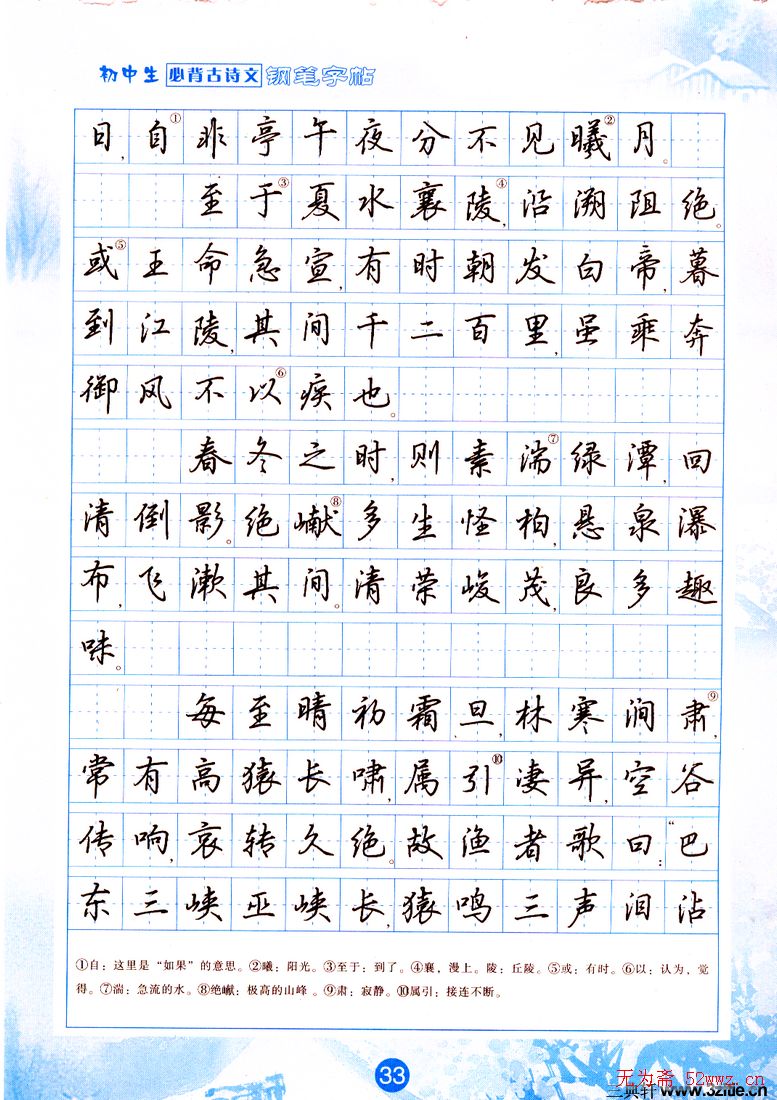 初中生 必背古诗文 钢笔字帖
日,自①非亭午夜分不见曦②月。
至于③夏水襄陵④,沿溯阻绝。
或⑤王命急宣,有时朝发白帝,暮
到江陵,其间千二百里,虽乘奔
御风不以⑥疾也。
春冬之时,则素湍⑦绿潭,回
清倒影。绝巘⑧多生怪柏,悬泉瀑
布,飞漱其间。清荣峻茂,良多趣
味。
每至晴初霜旦,林寒涧肃⑨,
常有高猿长啸,属引⑩凄异,空谷
传响,哀转久绝。故渔者歌曰:“巴
东三峡巫峡长,猿鸣三声泪沾
①自：这里是“如果”的意思。②曦：阳光。③至于：到了。④襄，漫上。陵：丘陵。⑤或：有时。⑥以：认为，觉
得。⑦湍：急流的水。⑧绝巘：极高的山峰 。⑨肃：寂静。⑩属引：接连不断。
33
无为斋 52wwz.cn
三典轩 www.32lue.cn